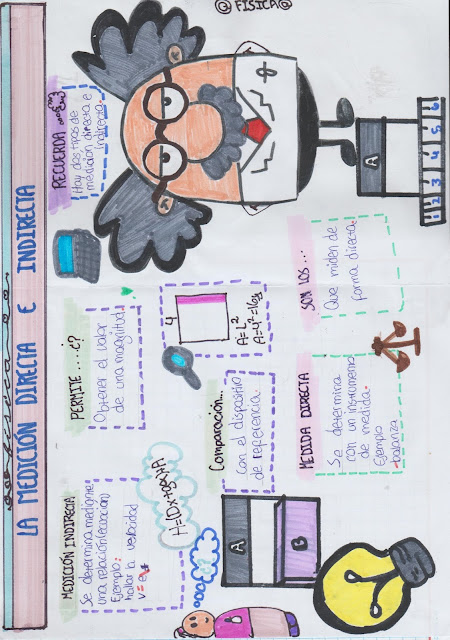 @ FÍSICA @
física
LA MEDICIÓN DIRECTA E INDIRECTA
MEDICIÓN INDIRECTA
Se determina mediante
una relación (ecuación)
Ejemplo:
hallar la velocidad
H=(Dxtgα)+A
PERMITE...¿?
Obtener el valor
de una magnitud.
RECUERDA
Hay dos tipos de
medición directa e
indirecta.
Comparación...
Con el dispositivo
de referencia.
4
A=L²
A=4²=16
MEDIDA DIRECTA
Se determina
con un instrumento
de medida.
Ejemplo
-balanza
SON LOS ...
Que miden de
forma directa.
A
B
A
1 2 3 4 5 6